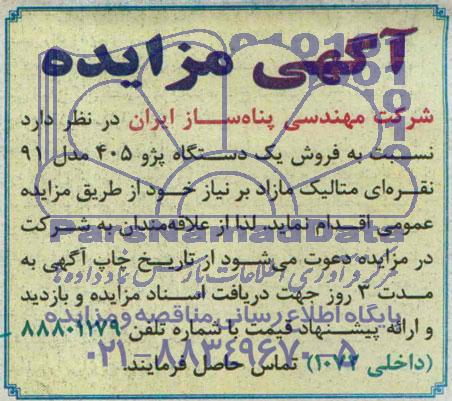 آگهی مزایده
شرکت مهندسی پناه‌ساز ایران در نظر دارد
نسبت به فروش یک دستگاه پژو ۴۰۵ مدل ۹۱
نقره‌ای متالیک مازاد بر نیاز خود از طریق مزایده
عمومی اقدام نماید. لذا از علاقه‌مندان به شرکت
در مزایده دعوت می‌شود از تاریخ چاپ آگهی به
مدت ۳ روز جهت دریافت اسناد مزایده و بازدید
و ارائه پیشنهاد قیمت با شماره تلفن ۸۸۸۰۱۱۷۹
(داخلی ۱۰۷۲) تماس حاصل فرمایند.
ParsNamadData
پایگاه اطلاع رسانی مناقصه و مزایده
۰۲۱-۸۸۳۴۹۶۷۰-۵